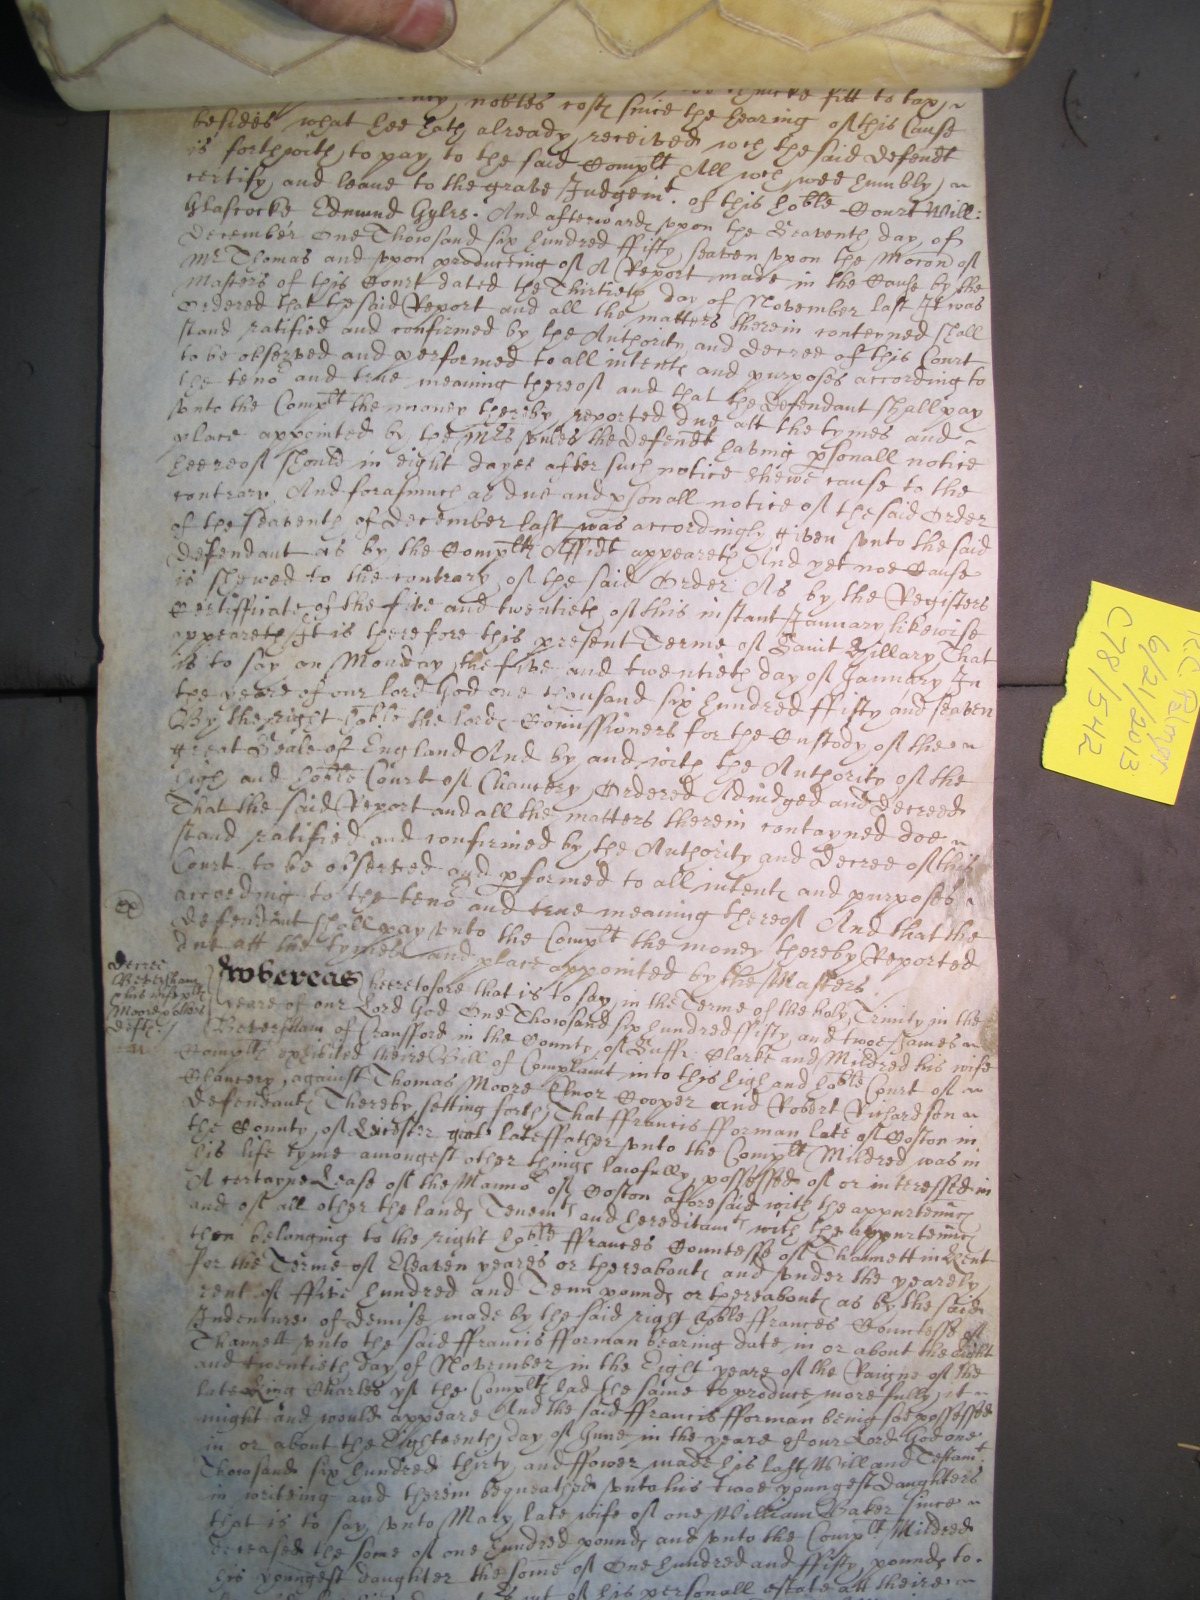 nobles costs since the hearing of this Cause
besides what hee hath already received wch the said Defendt
is forthwith to pay to the said Complt All wch wee humbly
certify and leave to the grave Judgemt. of this hoble Court Will:
Glascocke Edmund Gyles. And afterwards upon the Seaventh day of
December One Thowsand six hundred ffifty seaven upon the Mocon of
Mr Thomas and upon producing of A Report made in the Cause by the
Masters of this Court dated the Thirtieth day of November last It was
Ordered that the said Report and all the matters therein conteyned shall
stand ratified and confirmed by the Authority and Decree of this Court
to be observed and performed to all intents and purposes according to
the teno and true meaning thereof and that the Defendant shall pay
unto the Complt the money thereby reported due att the tymes and
place appointed by the Mrs unles the Defendt having psonall notice
heereof should in eight dayes after such notice shewe cause to the
contrary. And forasmuch as due and psonall notice of the said Order
of the seaventh of December last was accordingly given unto the said
Defendant as by the Complts Affidt appeareth And yet noe Cause
is shewed to the contrary of the said Order As by the Registers
Certifficate of the five and twentieth of this instant January likewise
appeareth It is therefore this present Terme of Saint Hillary That
is to say on Monday the five and twentieth day of January In
the yeare of our Lord God one thousand six hundred ffifty and seaven
By the right hoble the Lords Comissioners for the Custody of the
great Seale of England And by and with the Authority of the
high and hoble Court of Chancery Ordered Adiudged and Decreed
That the said Report and all the matters therein contayned doe
stand ratified and confirmed by the Authority and Decree of this
Court to be observed and pformed to all intents and purposes
according to the teno and true meaning thereof And that the
Defendant shall pay unto the Complt the money thereby Reported
due att the tymes and place appointed by the Masters.
Whereas heeretofore that is to say in the Terme of the holy Trinity in the
yeare of our Lord God One Thowsand six hundred ffifty and twoe James
Beversham of Cransford in the County of Suff: Clarke and Mildred his wife
Complts exhibited theire Bill of Complaint into this high and hoble Court of
Chancery against Thomas Moore Elnor Cooper and Robert Richardson
Defendants Thereby setting forth That ffrancis fforman late of Coston in
the County of Leicester late ffather unto the Complt Mildred was in
his life tyme amongest other things lawfully possessed of or interessed in
A certayne Lease of the Manno of Coston aforesaid with the appurtennc
and of all other the lands Tenemts and hereditamts with the appurtennc
then belonging to the right hoble ffrances Countesse of Thannett in Kent
for the Terme of Eleaven yeares or thereabouts and under the yearely
rent of ffive hundred and Tenn pounds or thereabouts as by the said
Indenture of demise made by the said right hoble ffrances Countesse of
Thannett unto the said ffrancis fforman bearing date in or about the Eight
and twentieth day of November in the Eight yeare of the Raigne of the
late King Charles yf the Complts had the same to produce more fully it
might and would appeare And the said ffrancis fforman being soe possessed
in or about the Eighteenth day of June in the yeare of our Lord God one
Thowsand six hundred thirty and ffower made his last Will and Testamt.
in writeing and therein bequeathed unto his twoe youngest daughters
that is to say unto Mary late wife of one William Baker since
deceased the some of one hundred pounds and unto the Complt Mildred
his youngest daughter the some of One hundred and ffifty pounds to
out of his personall estate att theire
Decree
Beversham
Moore
Defts
Palmer
6/21/2013
C78/542